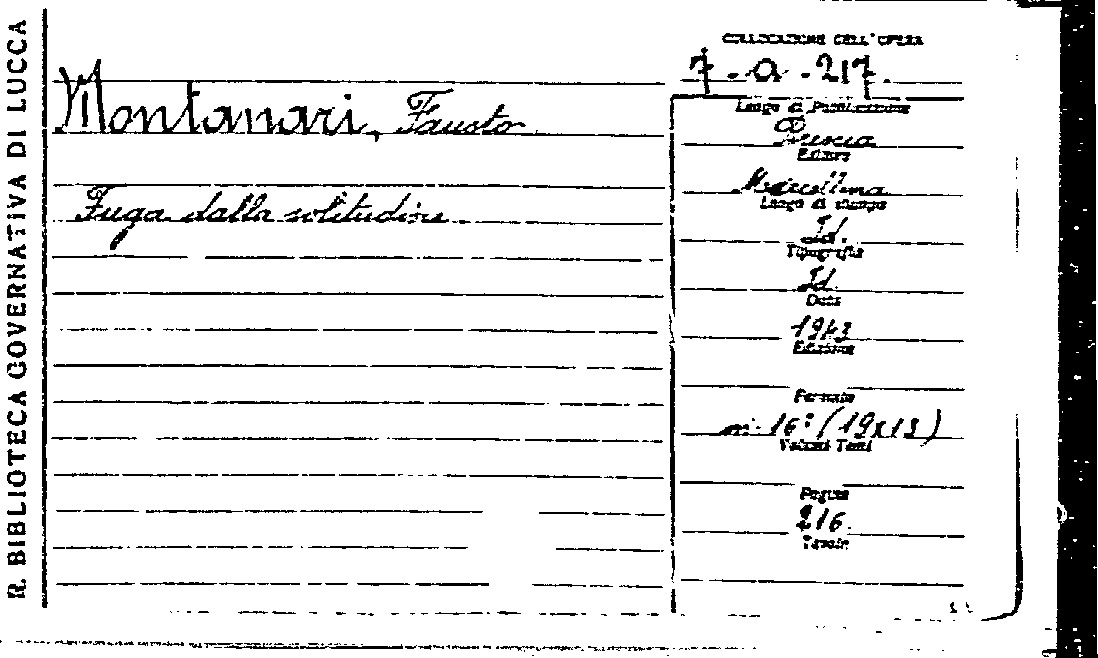 R. BIBLIOTECA GOVERNATIVA DI LUCCA
COLLOCAZIONE DELL'OPERA
7-a-217.
Montanari, Fausto
Fuga dalla solitudine
Luogo di Pubblicazione
Brescia
Editore
Morcelliana
Luogo di stampa
Id.
Tipografia
Id
Data
1943
Edizione
Formato
in-16° (19x13)
Volumi Tomi
Pagine
216.
Tavole